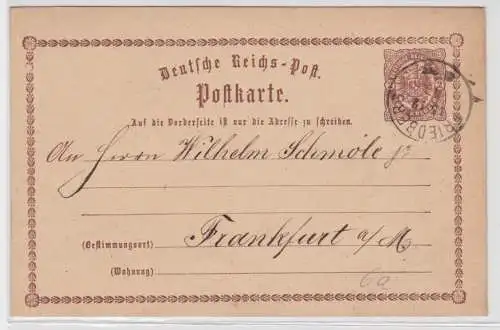 Deutsche Reichs-Post.
Postkarte.
Auf die Vorderseite ist nur die Adresse zu schreiben.
An Herrn Wilhelm Schmöle jr
(Bestimmungsort) Frankfurt a/M.
(Wohnung)
6a